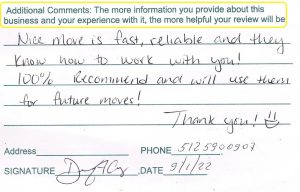 Additional Comments: The more information you provide about this
business and your experience with it, the more helpful your review will be
Nice move is fast, reliable and they
know how to work with you!
100% Recommend and will use them
for future moves!
Thank you!
Address
PHONE 5125900909
SIGNATURE DATE 9/1/22